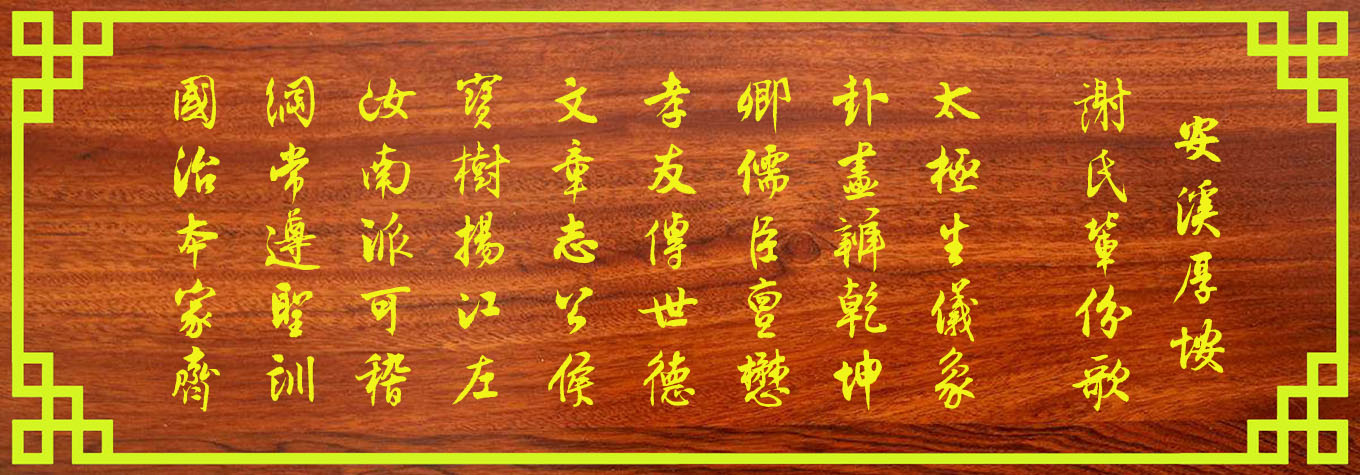 安溪厚垵
謝氏輩份歌
太極生儀象
卦盡辨乾坤
卿儒臣亶懋
孝友傳世德
文章志公侯
寶樹揚江左
汝南派可稽
綱常遵聖訓
國治本家齊